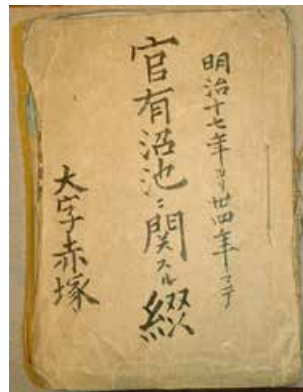 明治十七年ヨリ丗四年マテ
官有沼池ニ関スル綴
大字赤塚